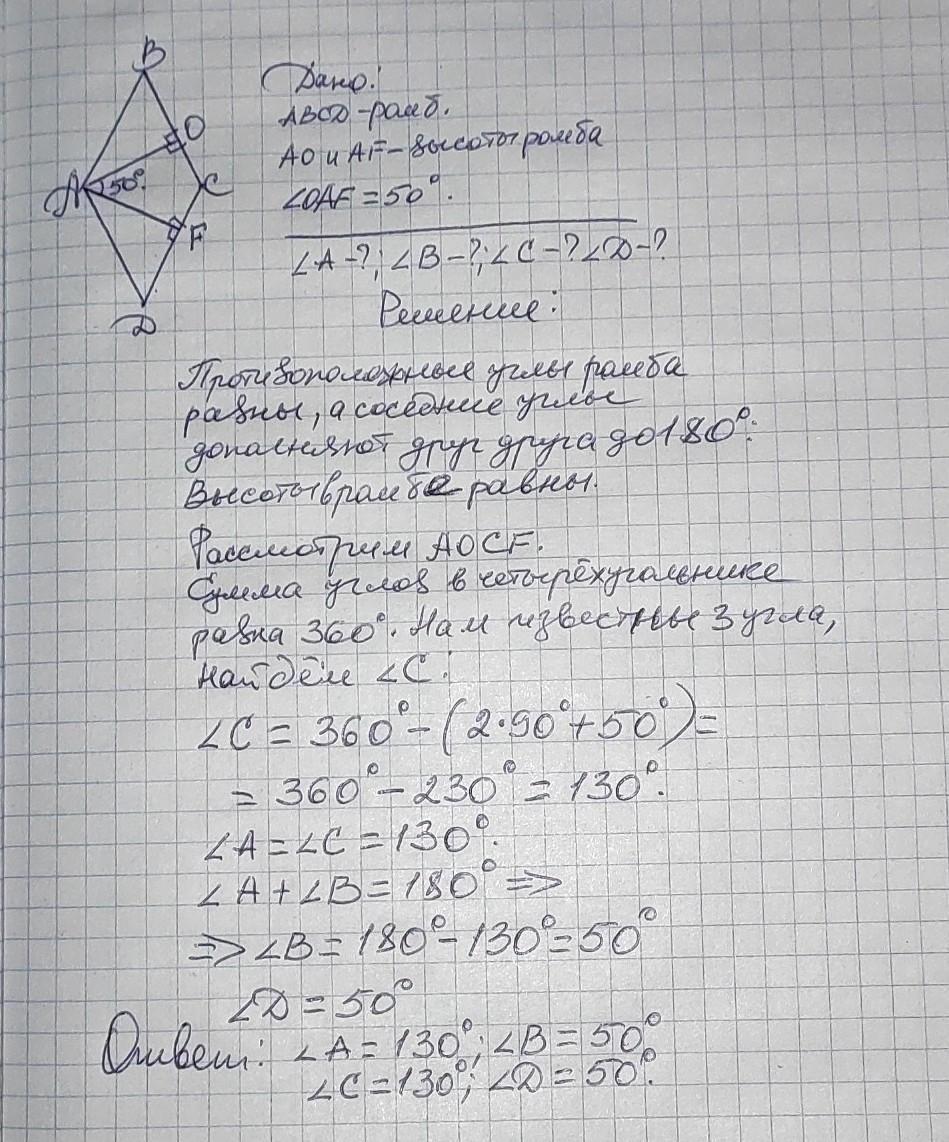 B
O
A 50°. C
F
D
Дано:
ABCD - ромб.
AO и AF - высоты ромба
∠OAF = 50°.
∠A - ?; ∠B - ?; ∠C - ? ∠D - ?
Решение:
Противоположные углы ромба
равны, а соседние углы
дополняют друг друга до 180°.
Высоты в ромбе равны.
Рассмотрим AOCF.
Сумма углов в четырёхугольнике
равна 360°. Нам известны 3 угла,
найдём ∠C:
∠C = 360° - (2·90° + 50°) =
= 360° - 230° = 130°.
∠A = ∠C = 130°.
∠A + ∠B = 180° =>
=> ∠B = 180° - 130° = 50°
∠D = 50°
Ответ: ∠A = 130°; ∠B = 50°
∠C = 130°; ∠D = 50°.